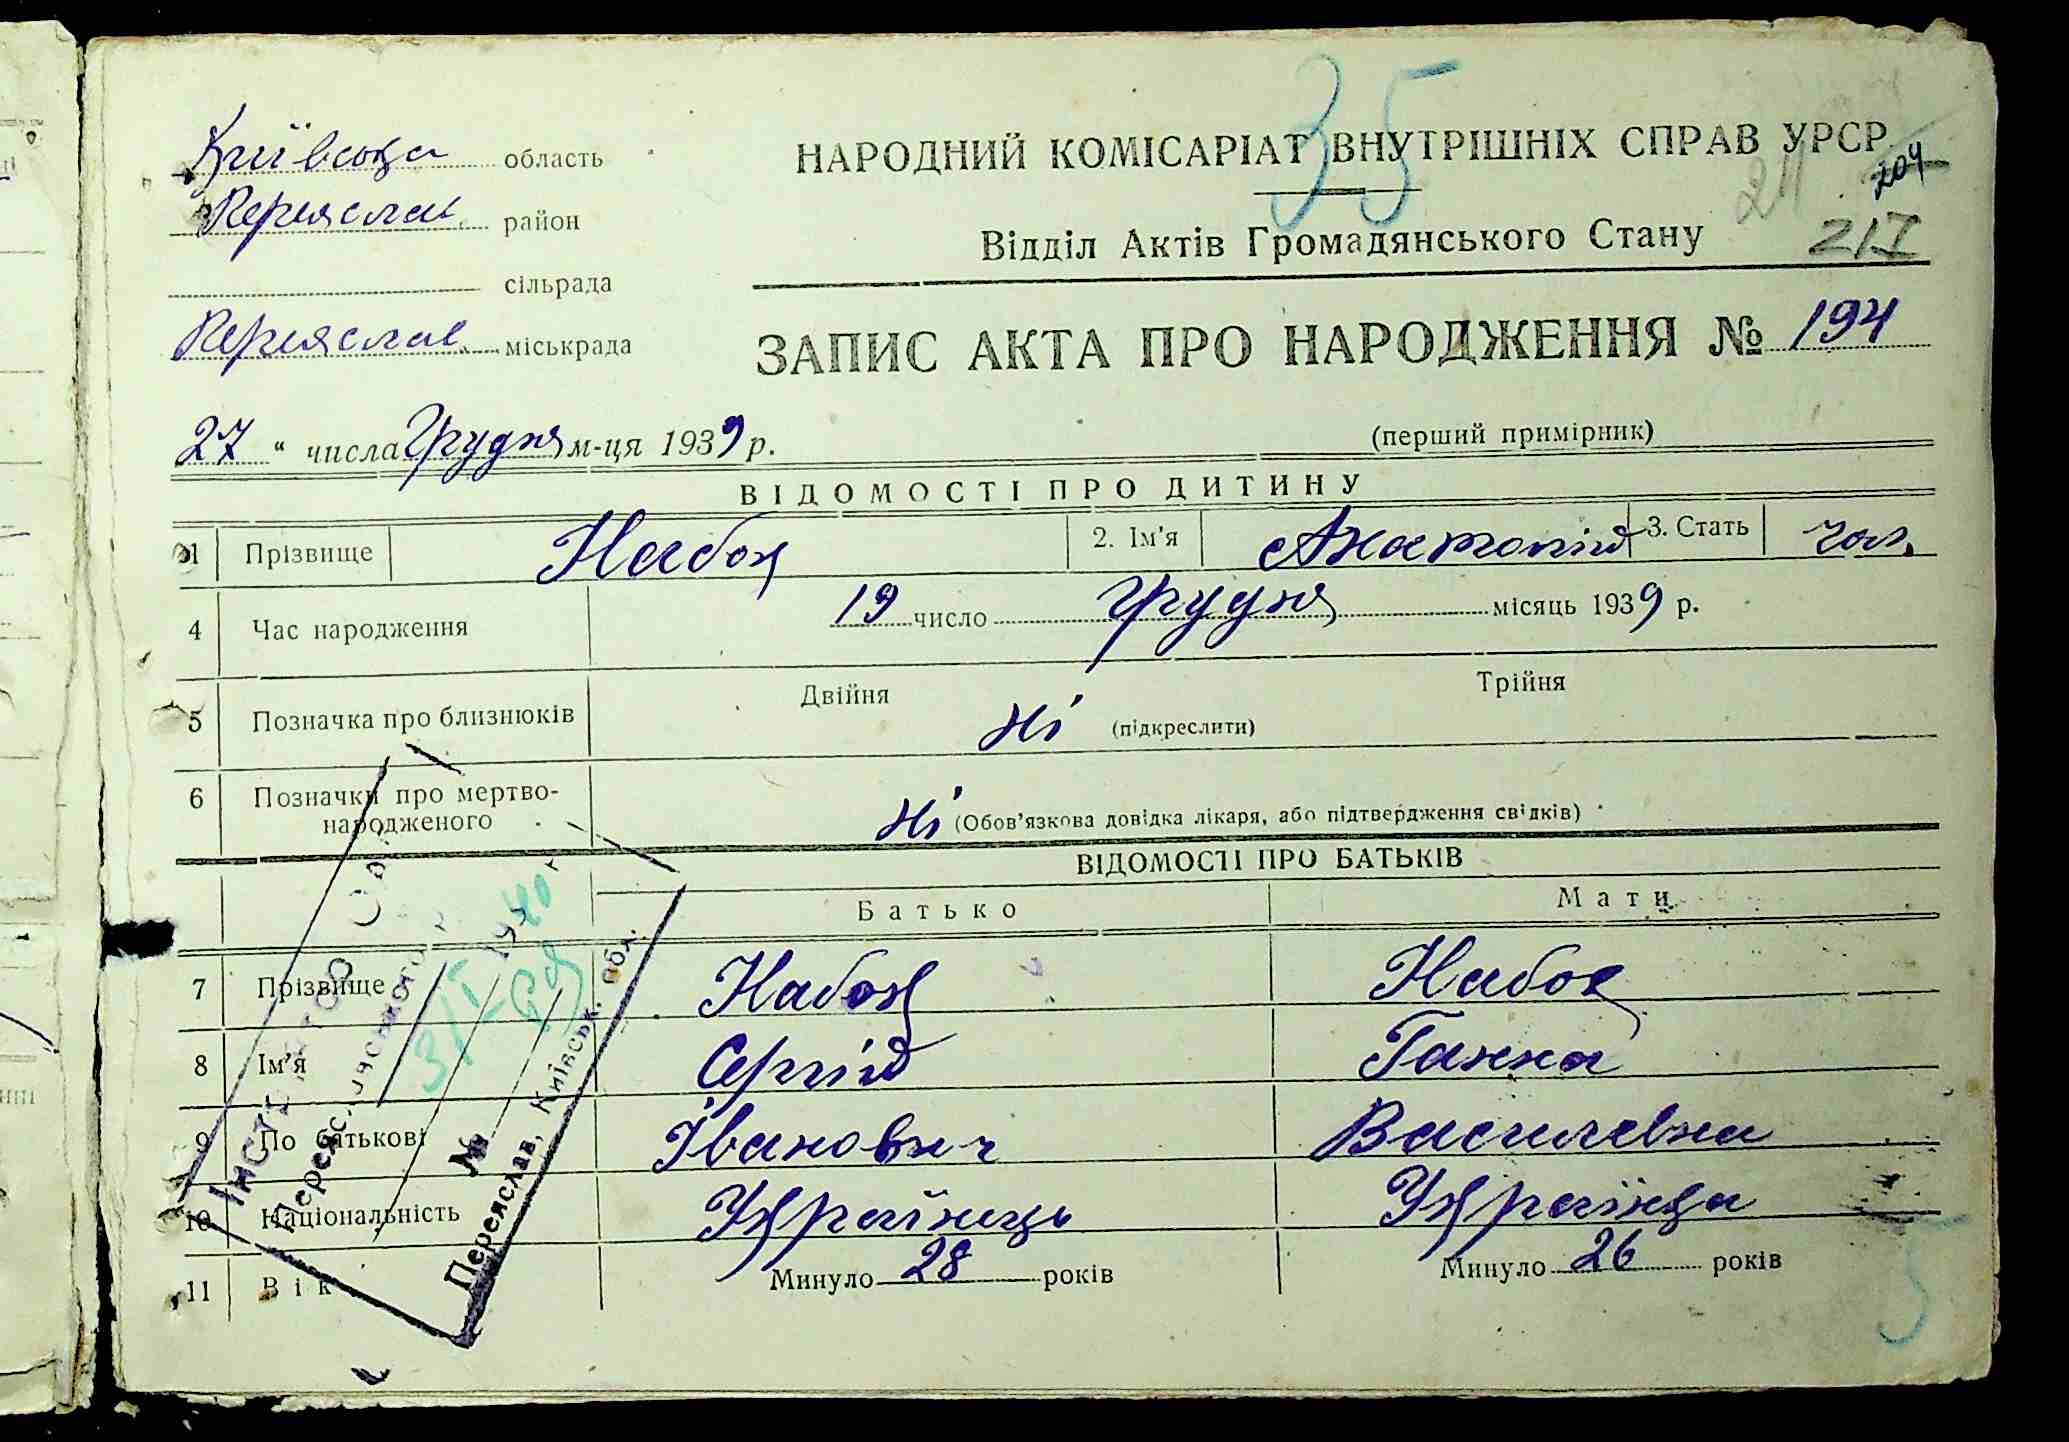 35
Київська область
НАРОДНИЙ КОМІСАРІАТ ВНУТРІШНІХ СПРАВ УРСР
211 204
Переяслав. район
Відділ Актів Громадянського Стану 217
сільрада
Переяслав. міськрада
ЗАПИС АКТА ПРО НАРОДЖЕННЯ № 194
27 " числа Грудня м-ця 1939 р.
(перший примірник)
ВІДОМОСТІ ПРО ДИТИНУ
1 Прізвище Набок 2. Ім'я Анатолій 3. Стать чол.
4 Час народження 19 число Грудня місяць 1939 р.
5 Позначка про близнюків Двійня Ні (підкреслити) Трійня
6 Позначки про мертво-
народженого Ні (Обов'язкова довідка лікаря, або підтвердження свідків)
ВІДОМОСТІ ПРО БАТЬКІВ
Батько Мати
7 Прізвище Набок Набок
8 Ім'я Сергій Ганна
9 По батькові Іванович Василевна
10 Національність Українець Українка
11 Вік Минуло 28 років Минуло 26 років
Переяславського
31/I 1940
№
Переяслав, Київськ. обл.